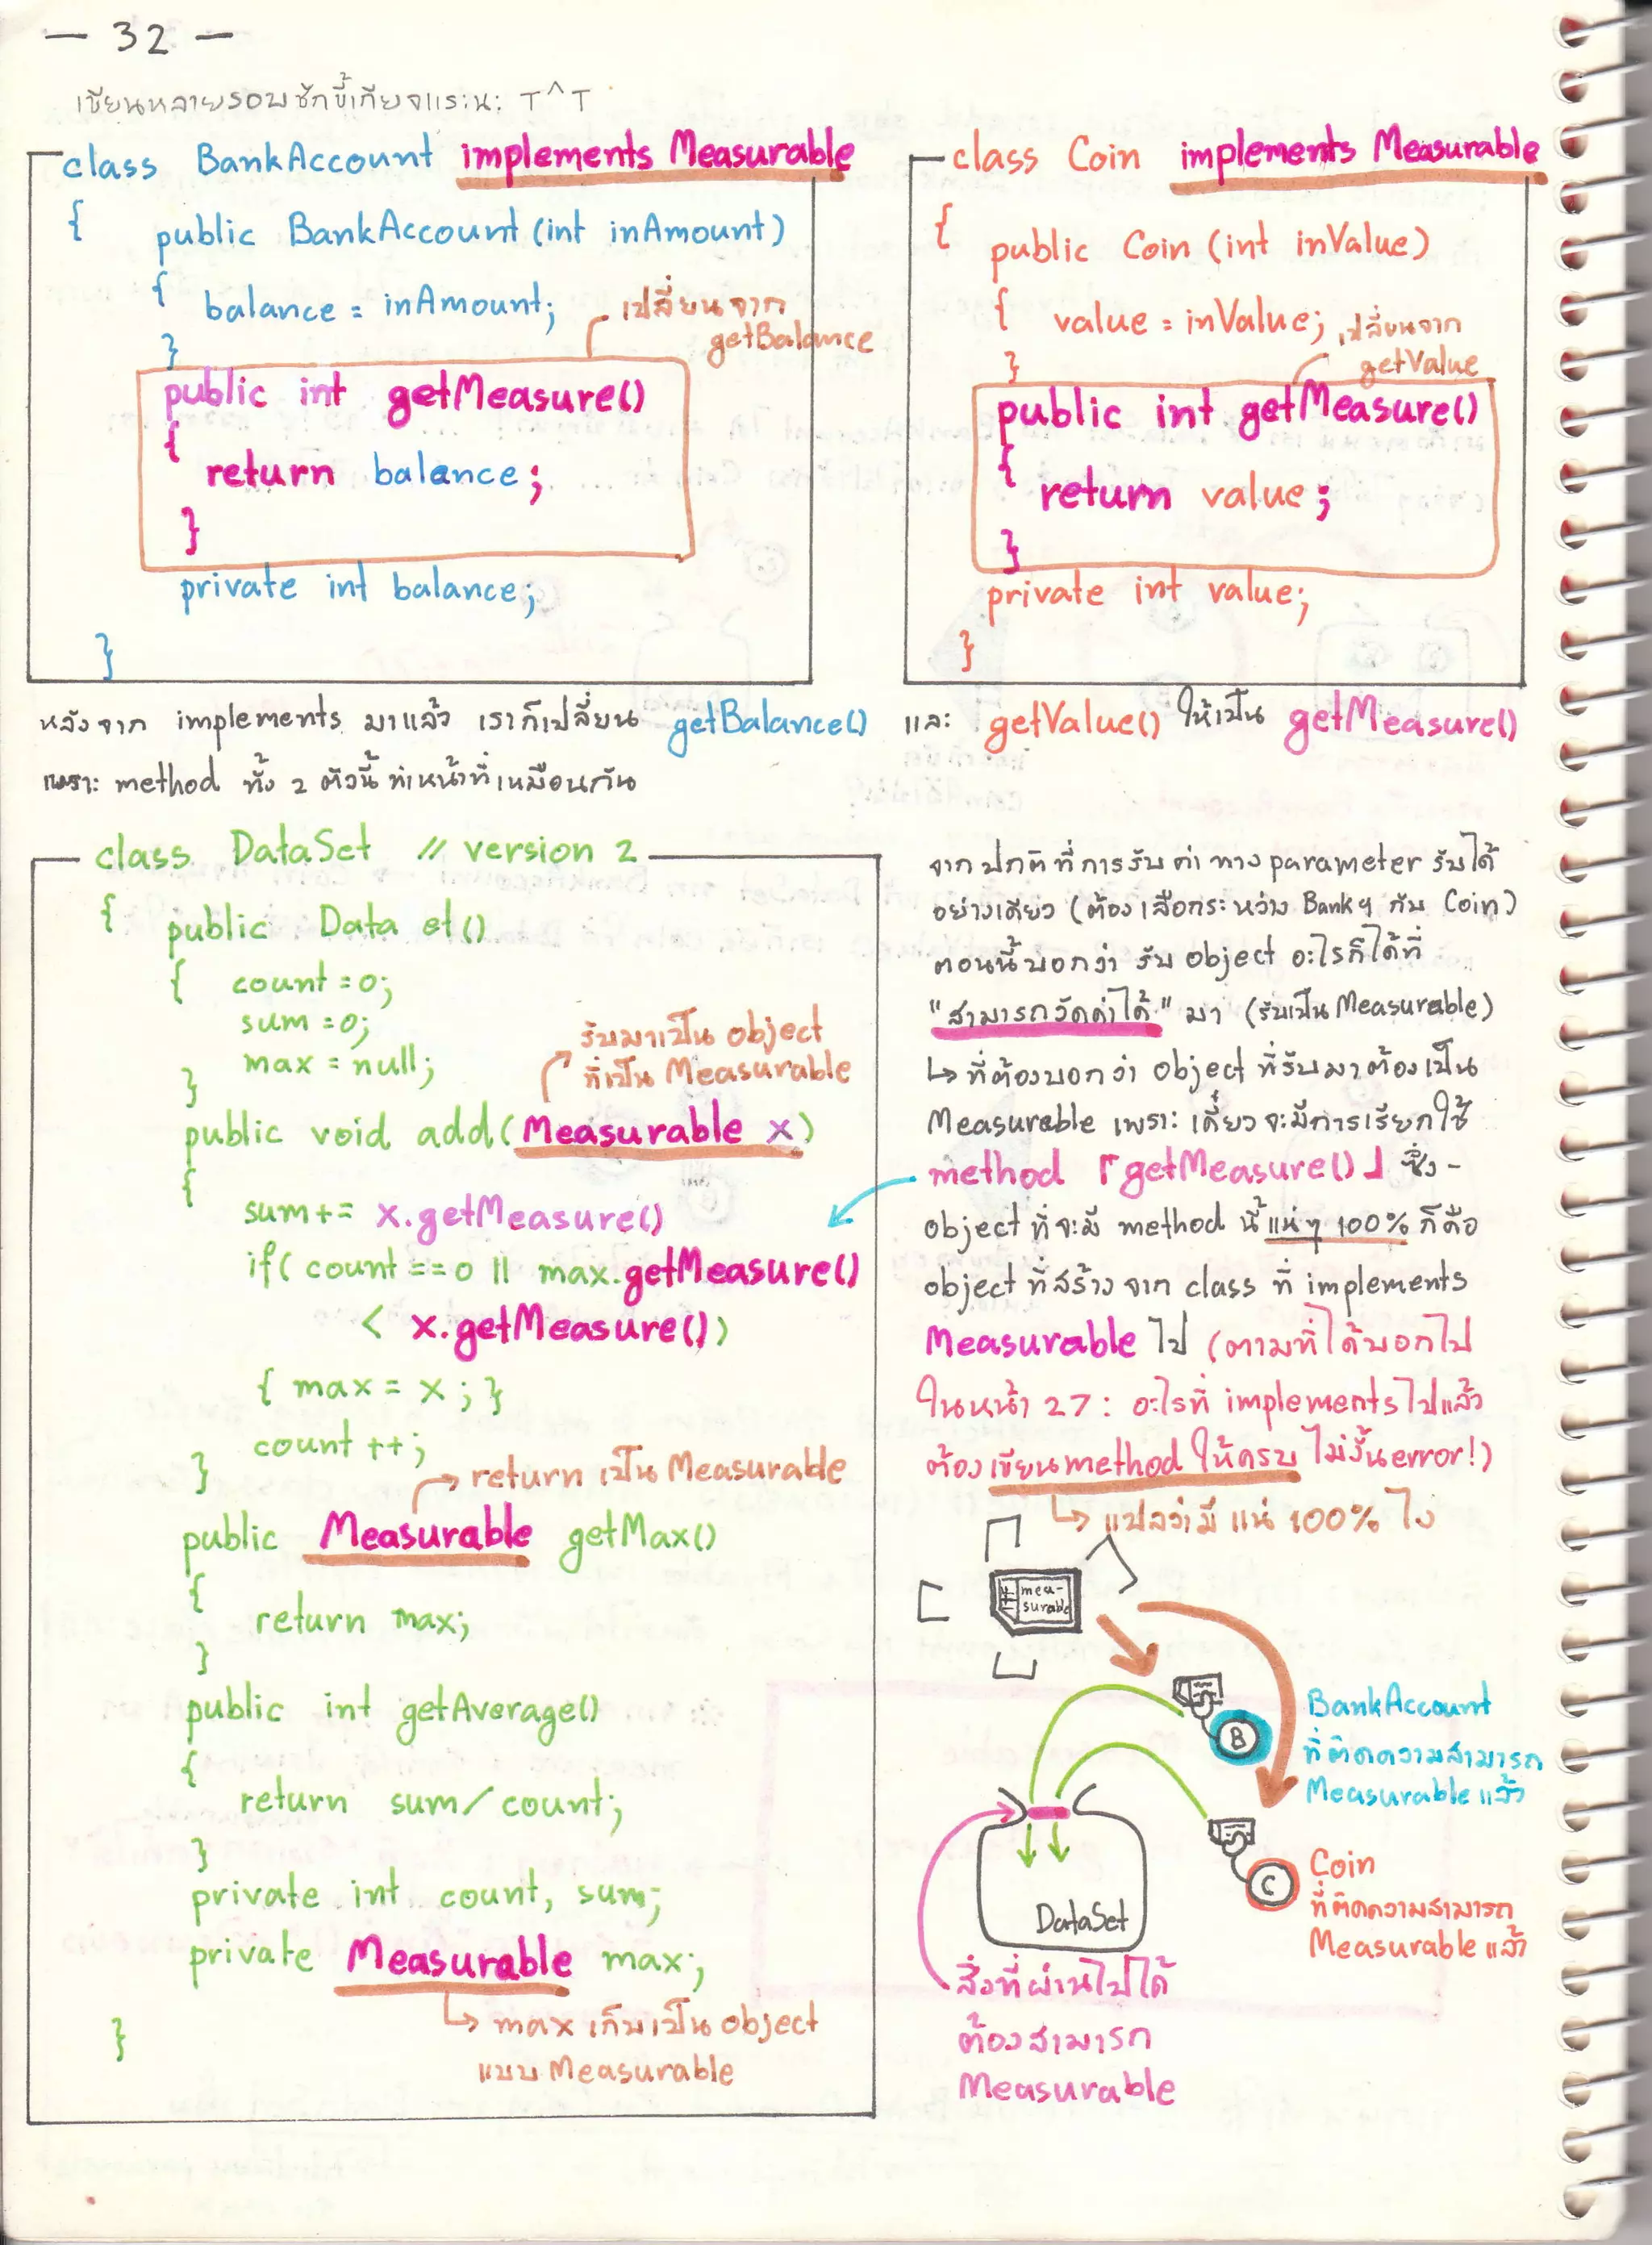 — 32 —
เขียนหลายรอบชักขี้เกียจแระนะ T^T
class BankAccount implements Measurable
{
public BankAccount(int inAmount)
{ balance = inAmount;
}
เปลี่ยนจาก
getBalance
public int getMeasure()
{
return balance;
}
private int balance;
}
class Coin implements Measurable
{
public Coin (int inValue)
{ value = inValue;
}
เปลี่ยนจาก
getValue
public int getMeasure()
{
return value;
}
private int value;
}
หลังจาก implements มาแล้ว เราก็เปลี่ยน getBalance() และ getValue() ให้เป็น getMeasure()
เพราะ method ทั้ง 2 ตัวนี้ ทำหน้าที่เหมือนกัน
class DataSet // version 2
{ public Data et()
{ count = 0;
sum = 0;
max = null;
}
รับมาเป็น object
ที่เป็น Measurable
public void add(Measurable x)
{
sum += x.getMeasure()
if( count == 0 || max.getMeasure()
< x.getMeasure())
{ max = x ; }
count ++;
}
return เป็น Measurable
public Measurable getMax()
{
return max;
}
public int getAverage()
{
return sum/count;
}
private int count, sum;
private Measurable max;
↳ max เก็บเป็น object
แบบ Measurable
}
จากปกติที่การรับค่าทาง parameter รับได้
อย่างเดียว (ต้องเลือกระหว่าง Bankฯ กับ Coin)
ตอนนี้บอกว่า รับ object อะไรก็ได้ที่
"สามารถวัดค่าได้" มา (รับเป็น Measurable)
↳ ที่ต้องบอกว่า object ที่รับมาต้องเป็น
Measurable เพราะ เดี๋ยวจะมีการเรียกใช้
method 「getMeasure()」 ซึ่ง-
object ที่จะมี method นี้แน่ๆ 100% ก็คือ
object ที่สร้างจาก class ที่ implements
Measurable ไป (ตามที่ได้บอกไป
ในหน้า 27 : อะไรที่ implements ไปแล้ว
ต้องเขียน method ให้ครบ ไม่งั้น error!)
↳ แปลว่ามีแน่ 100% ไง
mea-
surable
B
BankAccount
ที่ติดความสามารถ
Measurable แล้ว
C
Coin
ที่ติดความสามารถ
Measurable แล้ว
DataSet
สิ่งที่ผ่านไปได้
ต้องสามารถ
Measurable